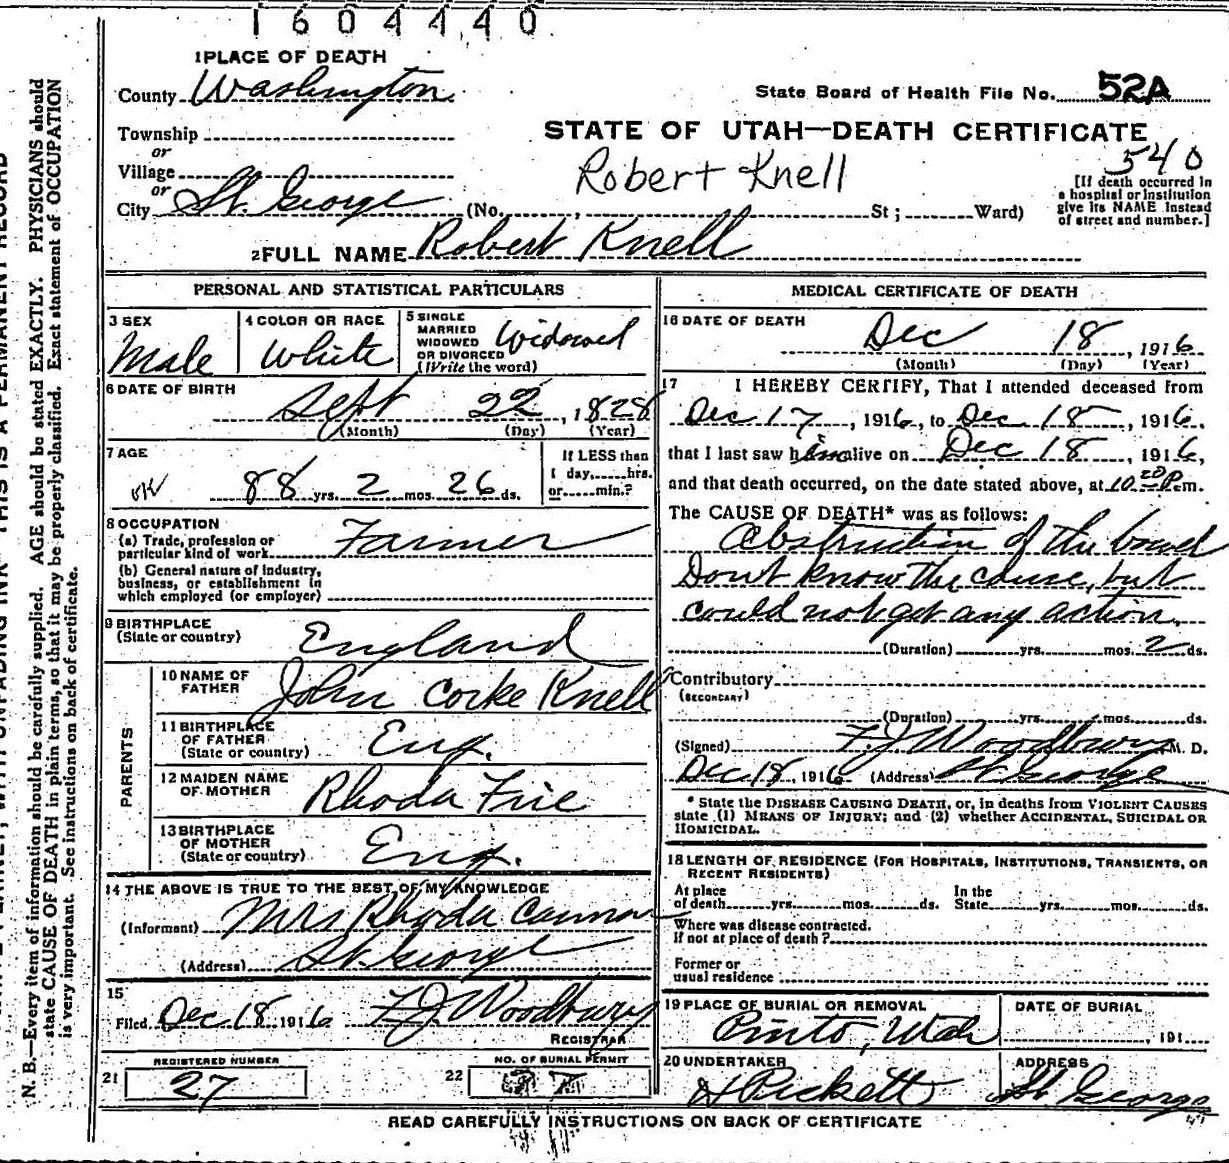 1604440
1 PLACE OF DEATH
County Washington
State Board of Health File No. 52A
Township
or
STATE OF UTAH—DEATH CERTIFICATE
540
Village
or
Robert Knell
[If death occurred in
a hospital or institution
give its NAME instead
of street and number.]
City St. George (No. , St ; Ward)
2 FULL NAME Robert Knell
PERSONAL AND STATISTICAL PARTICULARS
3 SEX
Male
4 COLOR OR RACE
White
5 SINGLE
MARRIED
WIDOWED
OR DIVORCED
(Write the word)
Widowed
6 DATE OF BIRTH
Sept 22, 1828
(Month) (Day) (Year)
7 AGE
OK 88 yrs. 2 mos. 26 ds.
If LESS than
1 day, hrs.
or min.?
8 OCCUPATION
(a) Trade, profession or
particular kind of work Farmer
(b) General nature of industry,
business, or establishment in
which employed (or employer)
9 BIRTHPLACE
(State or country) England
PARENTS
10 NAME OF
FATHER John Corke Knell
11 BIRTHPLACE
OF FATHER
(State or country) Eng.
12 MAIDEN NAME
OF MOTHER Rhoda Frie
13 BIRTHPLACE
OF MOTHER
(State or country) Eng.
14 THE ABOVE IS TRUE TO THE BEST OF MY KNOWLEDGE
(Informant) Mrs Rhoda Cannon
(Address) St. George
15
Filed Dec 18 1916 F J Woodbury
REGISTRAR
REGISTERED NUMBER
21 27
NO. OF BURIAL PERMIT
22 27
MEDICAL CERTIFICATE OF DEATH
16 DATE OF DEATH
Dec 18, 1916
(Month) (Day) (Year)
17 I HEREBY CERTIFY, That I attended deceased from
Dec 17, 1916, to Dec 18, 1916.
that I last saw him alive on Dec 18, 1916,
and that death occurred, on the date stated above, at 10 20 P.m.
The CAUSE OF DEATH* was as follows:
Obstruction of the bowel
Dont know the cause, but
could not get any action.
(Duration) yrs. mos. 2 ds.
Contributory
(SECONDARY)
(Duration) yrs. mos. ds.
(Signed) F J Woodbury M. D.
Dec 18, 1916 (Address) St. George
* State the DISEASE CAUSING DEATH, or, in deaths from VIOLENT CAUSES
state (1) MEANS OF INJURY; and (2) whether ACCIDENTAL, SUICIDAL OR
HOMICIDAL.
18 LENGTH OF RESIDENCE (FOR HOSPITALS, INSTITUTIONS, TRANSIENTS, OR
RECENT RESIDENTS)
At place
of death yrs. mos. ds.
In the
State yrs. mos. ds.
Where was disease contracted.
If not at place of death?
Former or
usual residence
19 PLACE OF BURIAL OR REMOVAL
Pinto, Utah
DATE OF BURIAL
, 191
20 UNDERTAKER
H Pickett
ADDRESS
St George
READ CAREFULLY INSTRUCTIONS ON BACK OF CERTIFICATE
N. B.—Every item of information should be carefully supplied. AGE should be stated EXACTLY. PHYSICIANS should
state CAUSE OF DEATH in plain terms, so that it may be properly classified. Exact statement of OCCUPATION
is very important. See instructions on back of certificate.